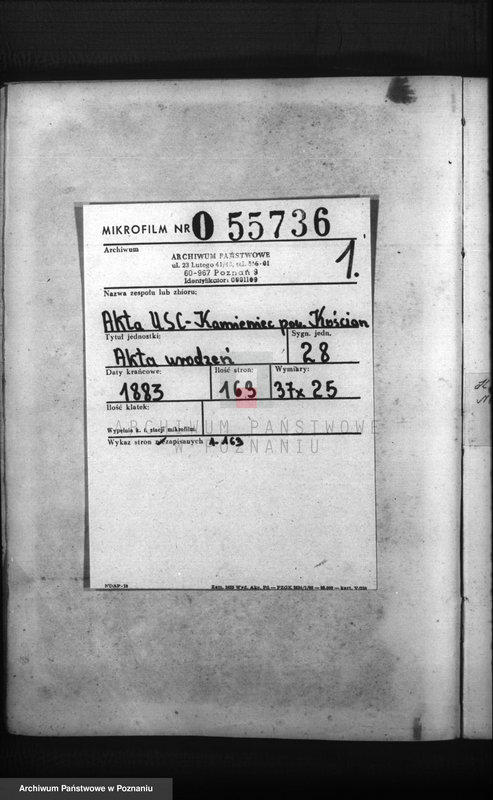 MIKROFILM NR 0 55736
Archiwum
ARCHIWUM PAŃSTWOWE
ul. 23 Lutego 41/43, tel.
60-967 Poznań 9
Identyfikator: 0001109
1.
Nazwa zespołu lub zbioru:
Akta USC-Kamieniec pow. Kościan
Tytuł jednostki: Sygn. jedn.
Akta urodzeń 28
Daty krańcowe: Ilość stron: Wymiary:
1883 169 37x25
Ilość klatek:
Wypełnia k. t. stacji mikrofilm.
Wykaz stron niezapisanych 1-169
ARCHIWUM PAŃSTWOWE
W POZNANIU
Archiwum Państwowe w Poznaniu